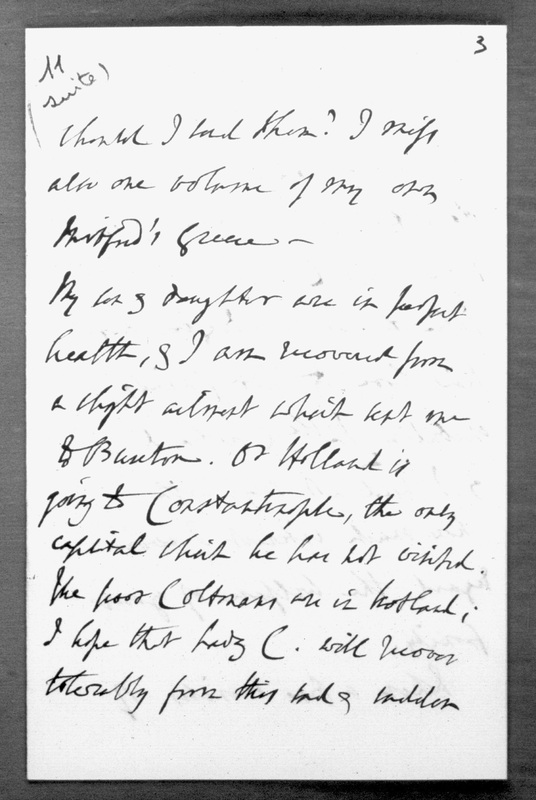 3
11
(suite)
should I send them? I miss
also one volume of my own
Mitford's Greece —
My son & daughter are in perfect
health, & I am recovered from
a slight ailment which sent me
to Buxton. Dr Holland is
going to Constantinople, the only
capital which he has not visited.
The poor Coltmans are in Scotland;
I hope that Lady C. will recover
tolerably from this sad & sudden